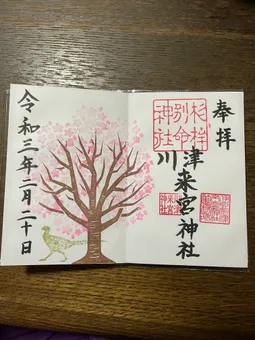 奉拝
川津来宮神社
杉桙
別命
神社
令和三年二月二十日